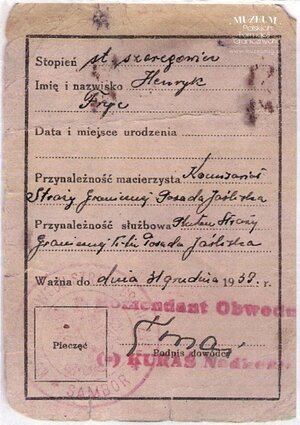 MUZEUM
Polskich
Formacji
Granicznych
Stopień st. szeregowiec
Imię i nazwisko Henryk
Fryc
Data i miejsce urodzenia
Przynależność macierzysta Komisariat
Straży Granicznej Posada Jaśliska
Przynależność służbowa Pluton Straży
Granicznej Posada Jaśliska
Ważna do dnia 31 grudnia 1939. r.
Komendant Obwodu
Pieczęć
Podpis dowódcy
(-) KURAS Nadkom.
SAMBOR